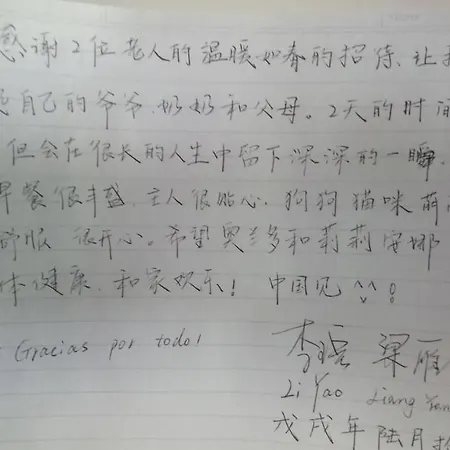 感谢2位老人的温暖如春的招待、让
自己的爷爷、奶奶和父母。2天的时间
但会在很长的人生中留下深深的一瞬
早餐很丰盛、主人很贴心、狗狗猫咪萌
舒服、很开心。希望奥兰多和莉莉安娜
体健康、和家欢乐! 中国见 ^^!
Gracias por todo!
李瑶 梁雁
Li Yao Liang Yan
戊戌年 陆月